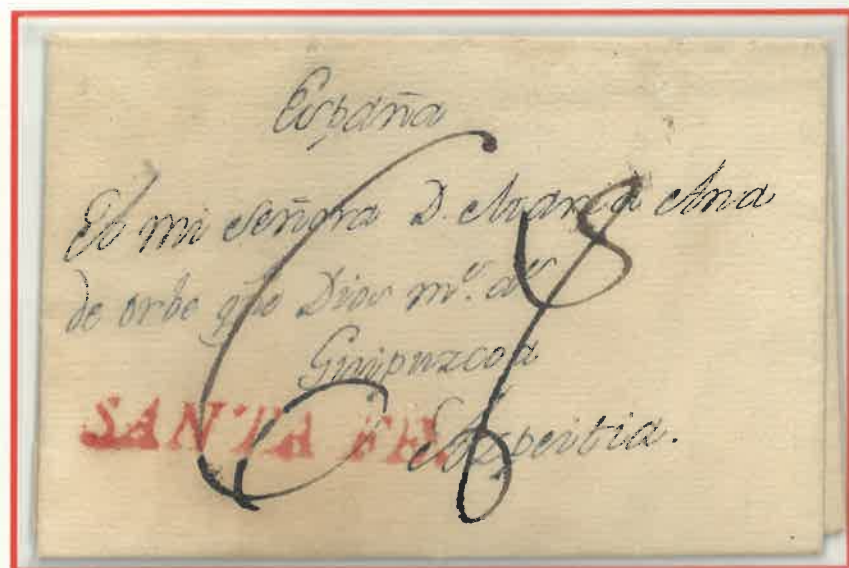 España
A mi señora D. Maria Ana
de orbe que Dios m.s a.s
Guipuzcoa
SANTA FE. Azpeitia.